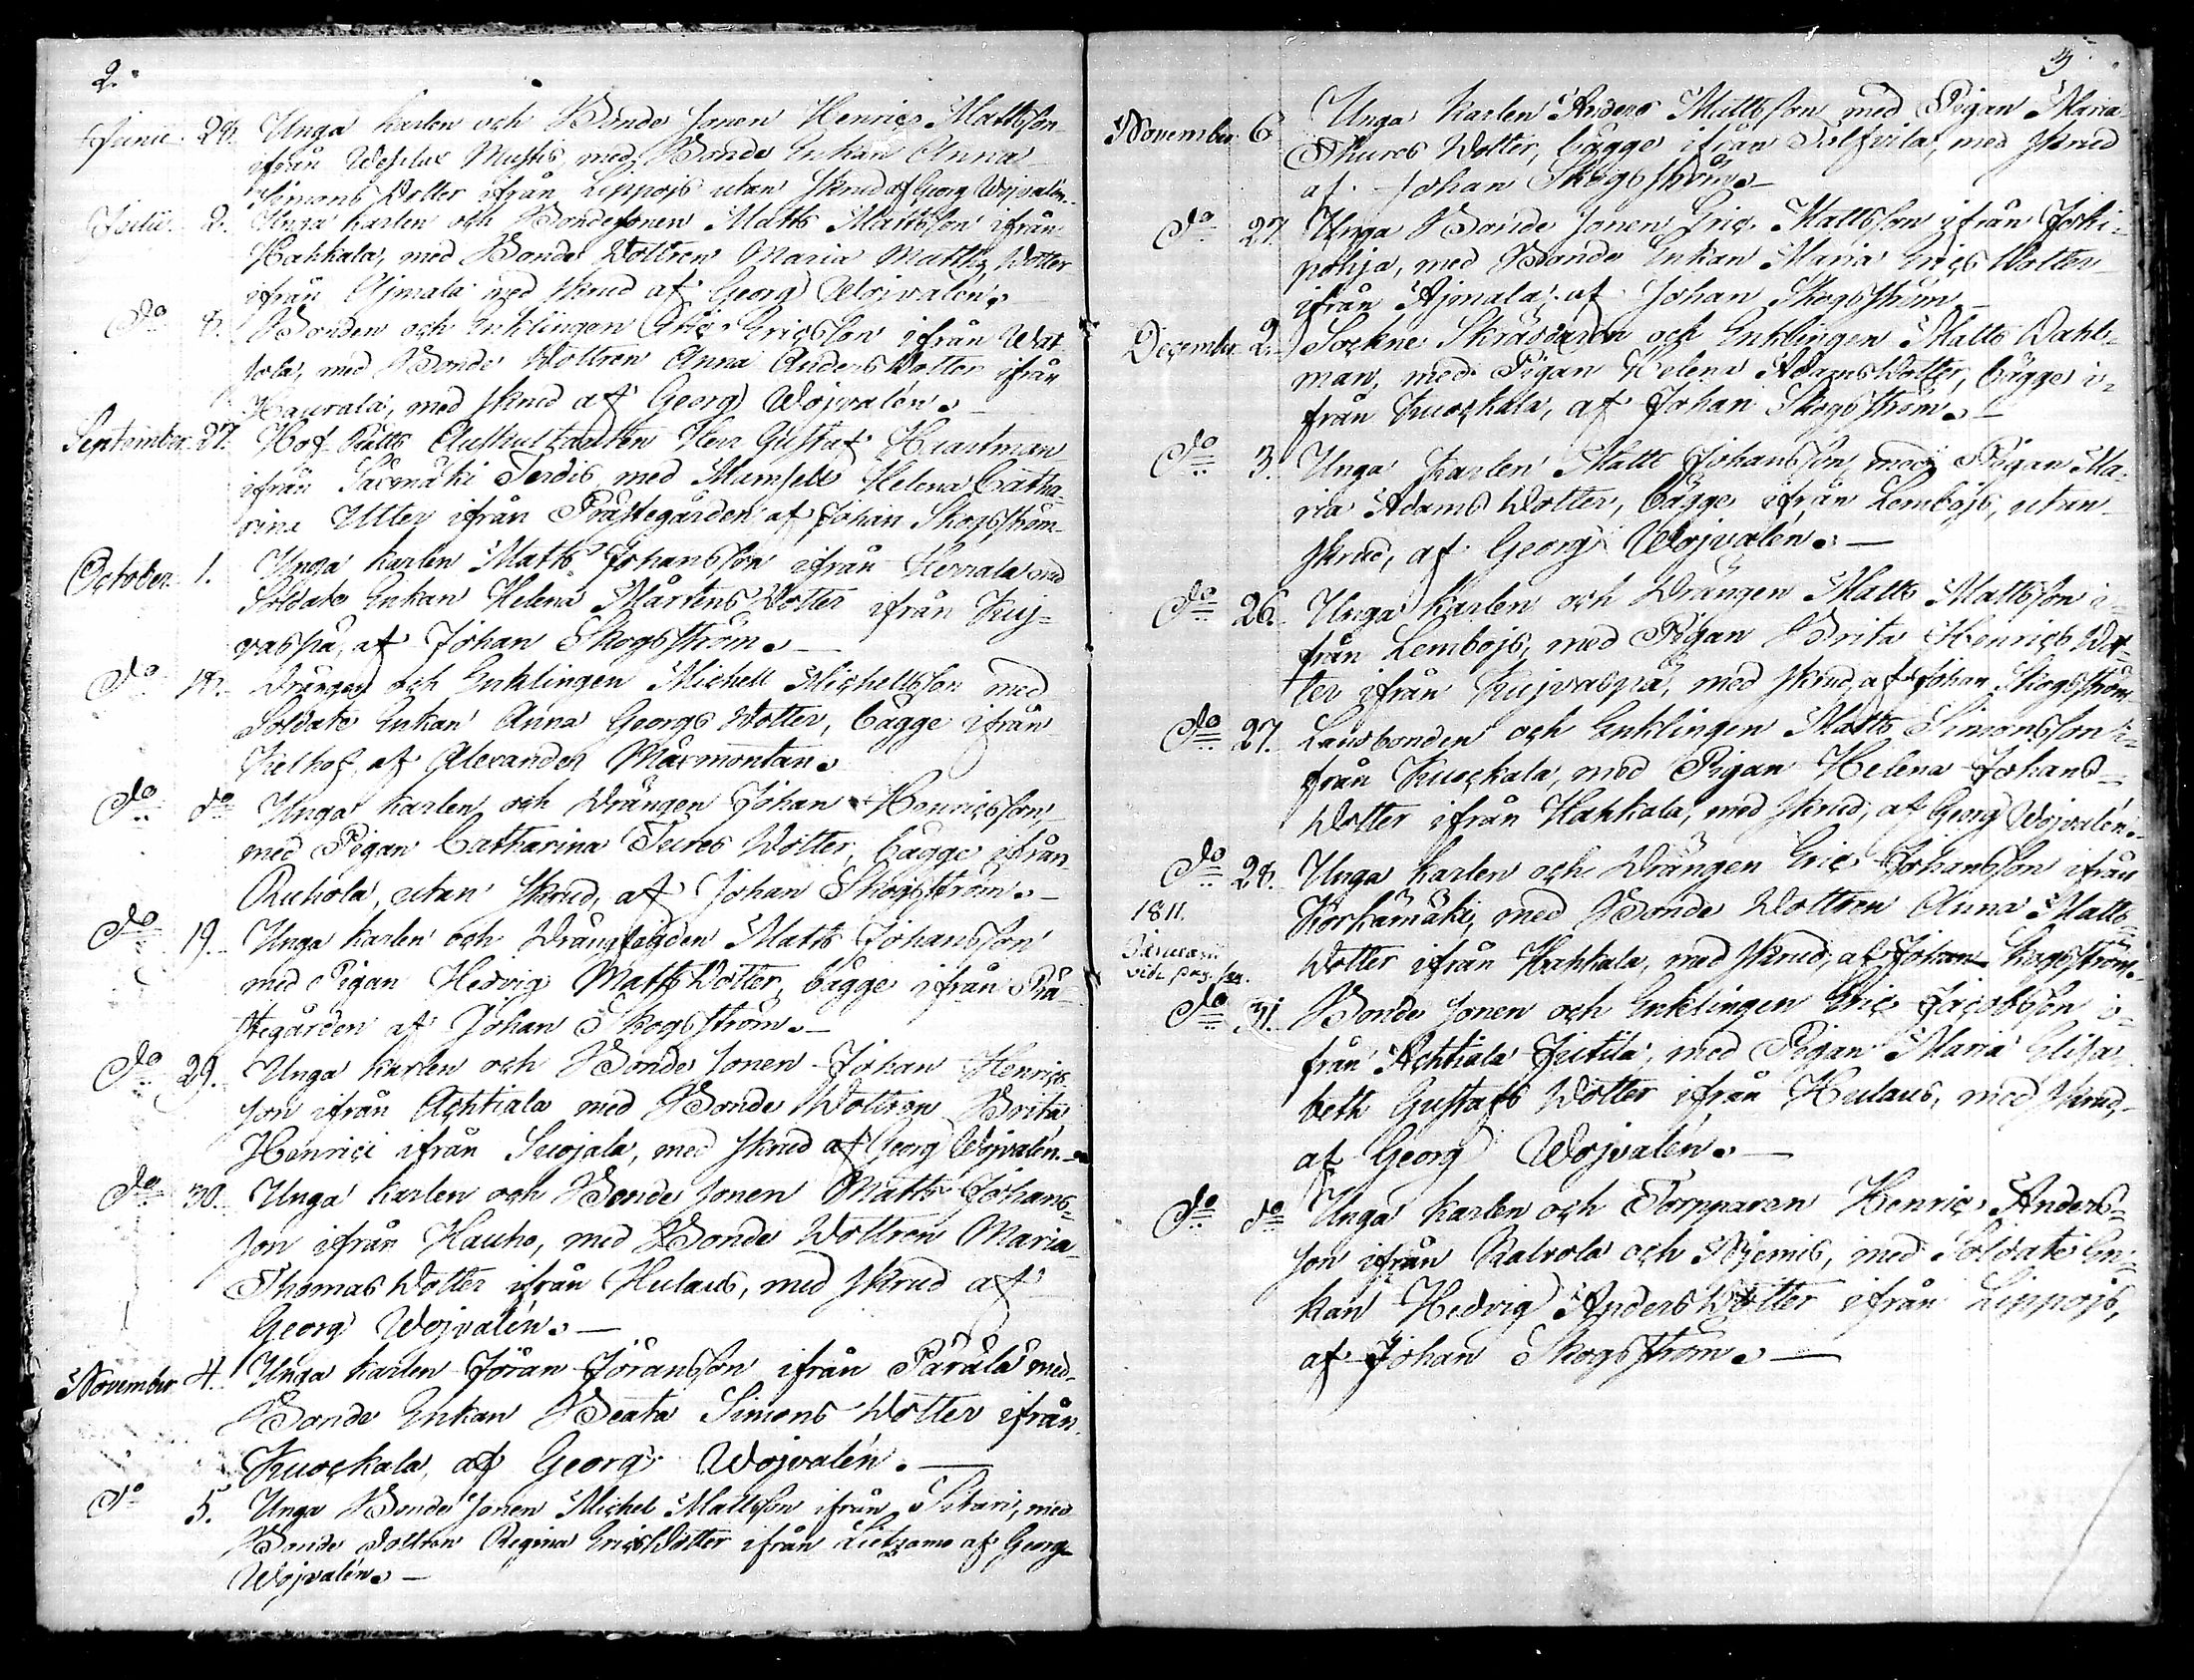 2.
Junii 28. Unga Karlen och Bonde sonen Henric Mattsson
ifrån Uskilax Mustis, med Bonde Enkan Anna
Simons Dotter ifrån Lippojs utan skrud af Georg Wojvalén.
Julii 2. Unga karlen och Bondesonen Matts Mattsson ifrån
Hahkala, med Bonde Dottren Maria Matts Dotter
ifrån Ajmala med skrud af Georg Wojvalén.
Do 8. Bonden och Enklingen Eric Ericsson ifrån
med Bonde Dottren Anna Anders Dotter ifrån
Haurala, med skrud af Georg Wojvalén.
September 27. Hof Rätts Auskultanten Herr Gustaf Huartman
ifrån Särmäki med Mamsell Helena Catha¬
rina Utter ifrån Prästegården af Johan Skogström
October 1. Unga karlen Matts Johansson ifrån Herrala med
Soldate Enkan Helena Mårtens Dotter ifrån Kuj¬
vaspä, af Johan Skogström.
Do 18. Drängen och Enklingen Michell Michellsson med
Soldate Enkan Anna Georgs Dotter, bägge ifrån
Kielhof, af Alexander Marmontan.
Do do Unga karlen och Drängen Johan Henricsson,
med Pigan Catharina Tures Dotter, bägge ifrån
Ruhola, utan skrud, af Johan Skogström.
Do 19. Unga karlen och Drängfogden Matts Johansson
med Pigan Hedvig Matts Dotter, bägge ifrån Prä¬
stegården af Johan Skogström.
Do 29. Unga karlen och Bonde sonen Johan Henrics
son ifrån Achtiala med Bonde Dottren Brita
Henrici ifrån Suojala, med skrud af Georg Wojvalén.
Do 30. Unga karlen och Bonde sonen Matts Johans¬
son ifrån Hauho, med Bonde Dottren Maria
Thomas Dotter ifrån Hulaus, med skrud af
Georg Wojvalén.
November 4. Unga karlen Jöran Jöransson ifrån Pärälä med
Bonde Enkan Beata Simons Dotter ifrån
Kuockala, af Georg Wojvalén.
Do 5. Unga Bonde sonen Michel Mattsson ifrån Sitari, med
Bonde dottren Regina Erics Dotter ifrån Lietzamo af Georg
Wojvalén.
3.
November 6 Unga karlen Anders Mattsson med Pigan Maria
Thures Dotter, bägge ifrån Silfvila, med skrud
af Johan Skogström.
Do 27. Unga Bonde sonen Eric Mattsson ifrån Joki¬
pohja, med Bonde Enkan Maria Erics Dotter
ifrån Ajmala, af Johan Skogström.
December 2. Sockne Skräddaren och Enklingen Matts Dahl¬
man, med Pigan Helena Adams Dotter, bägge i¬
från Kuockala, af Johan Skogström.
Do 3. Unga karlen Matts Johansson med Pigan Ma¬
ria Adams Dotter, bägge ifrån Lembojs, utan
skrud, af Georg Wojvalén.
Do 26. Unga karlen och Drängen Matts Mattsson i¬
från Lembojs, med Pigan Brita Henrics Dot¬
ter ifrån Kujvaspä, med skrud, af Johan Skogström
Do 27. Lansbonden och Enklingen Matts Simonsson i¬
från Kuockala, med Pigan Helena Johans
Dotter ifrån Hahkala, med skrud, af Georg Wojvalén.
Do 28. Unga karlen och Drängen Eric Johansson ifrån
1811. Korkämäki, med Bonde Dottren Anna Matts
Januari Dotter ifrån Hahkala, med skrud, af Johan Skogström.
vide pag.
Do 31. Bonde sonen och Enklingen Eric Jacobsson i¬
från Achtiala Jeitilä, med Pigan Maria Elisa
beth Gustafs Dotter ifrån Hulaus, med skrud
af Georg Wojvalén.
Do do Unga karlen och Torpparen Henric Anders¬
son ifrån Kalvola och Njemis, med Soldate En¬
kan Hedvig Anders Dotter ifrån Lippojs,
af Johan Skogström.